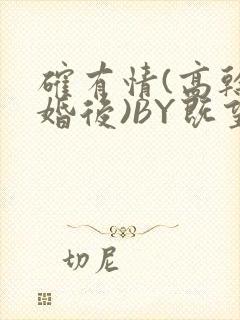 確有情(高乾
婚後)BY既望
切尼